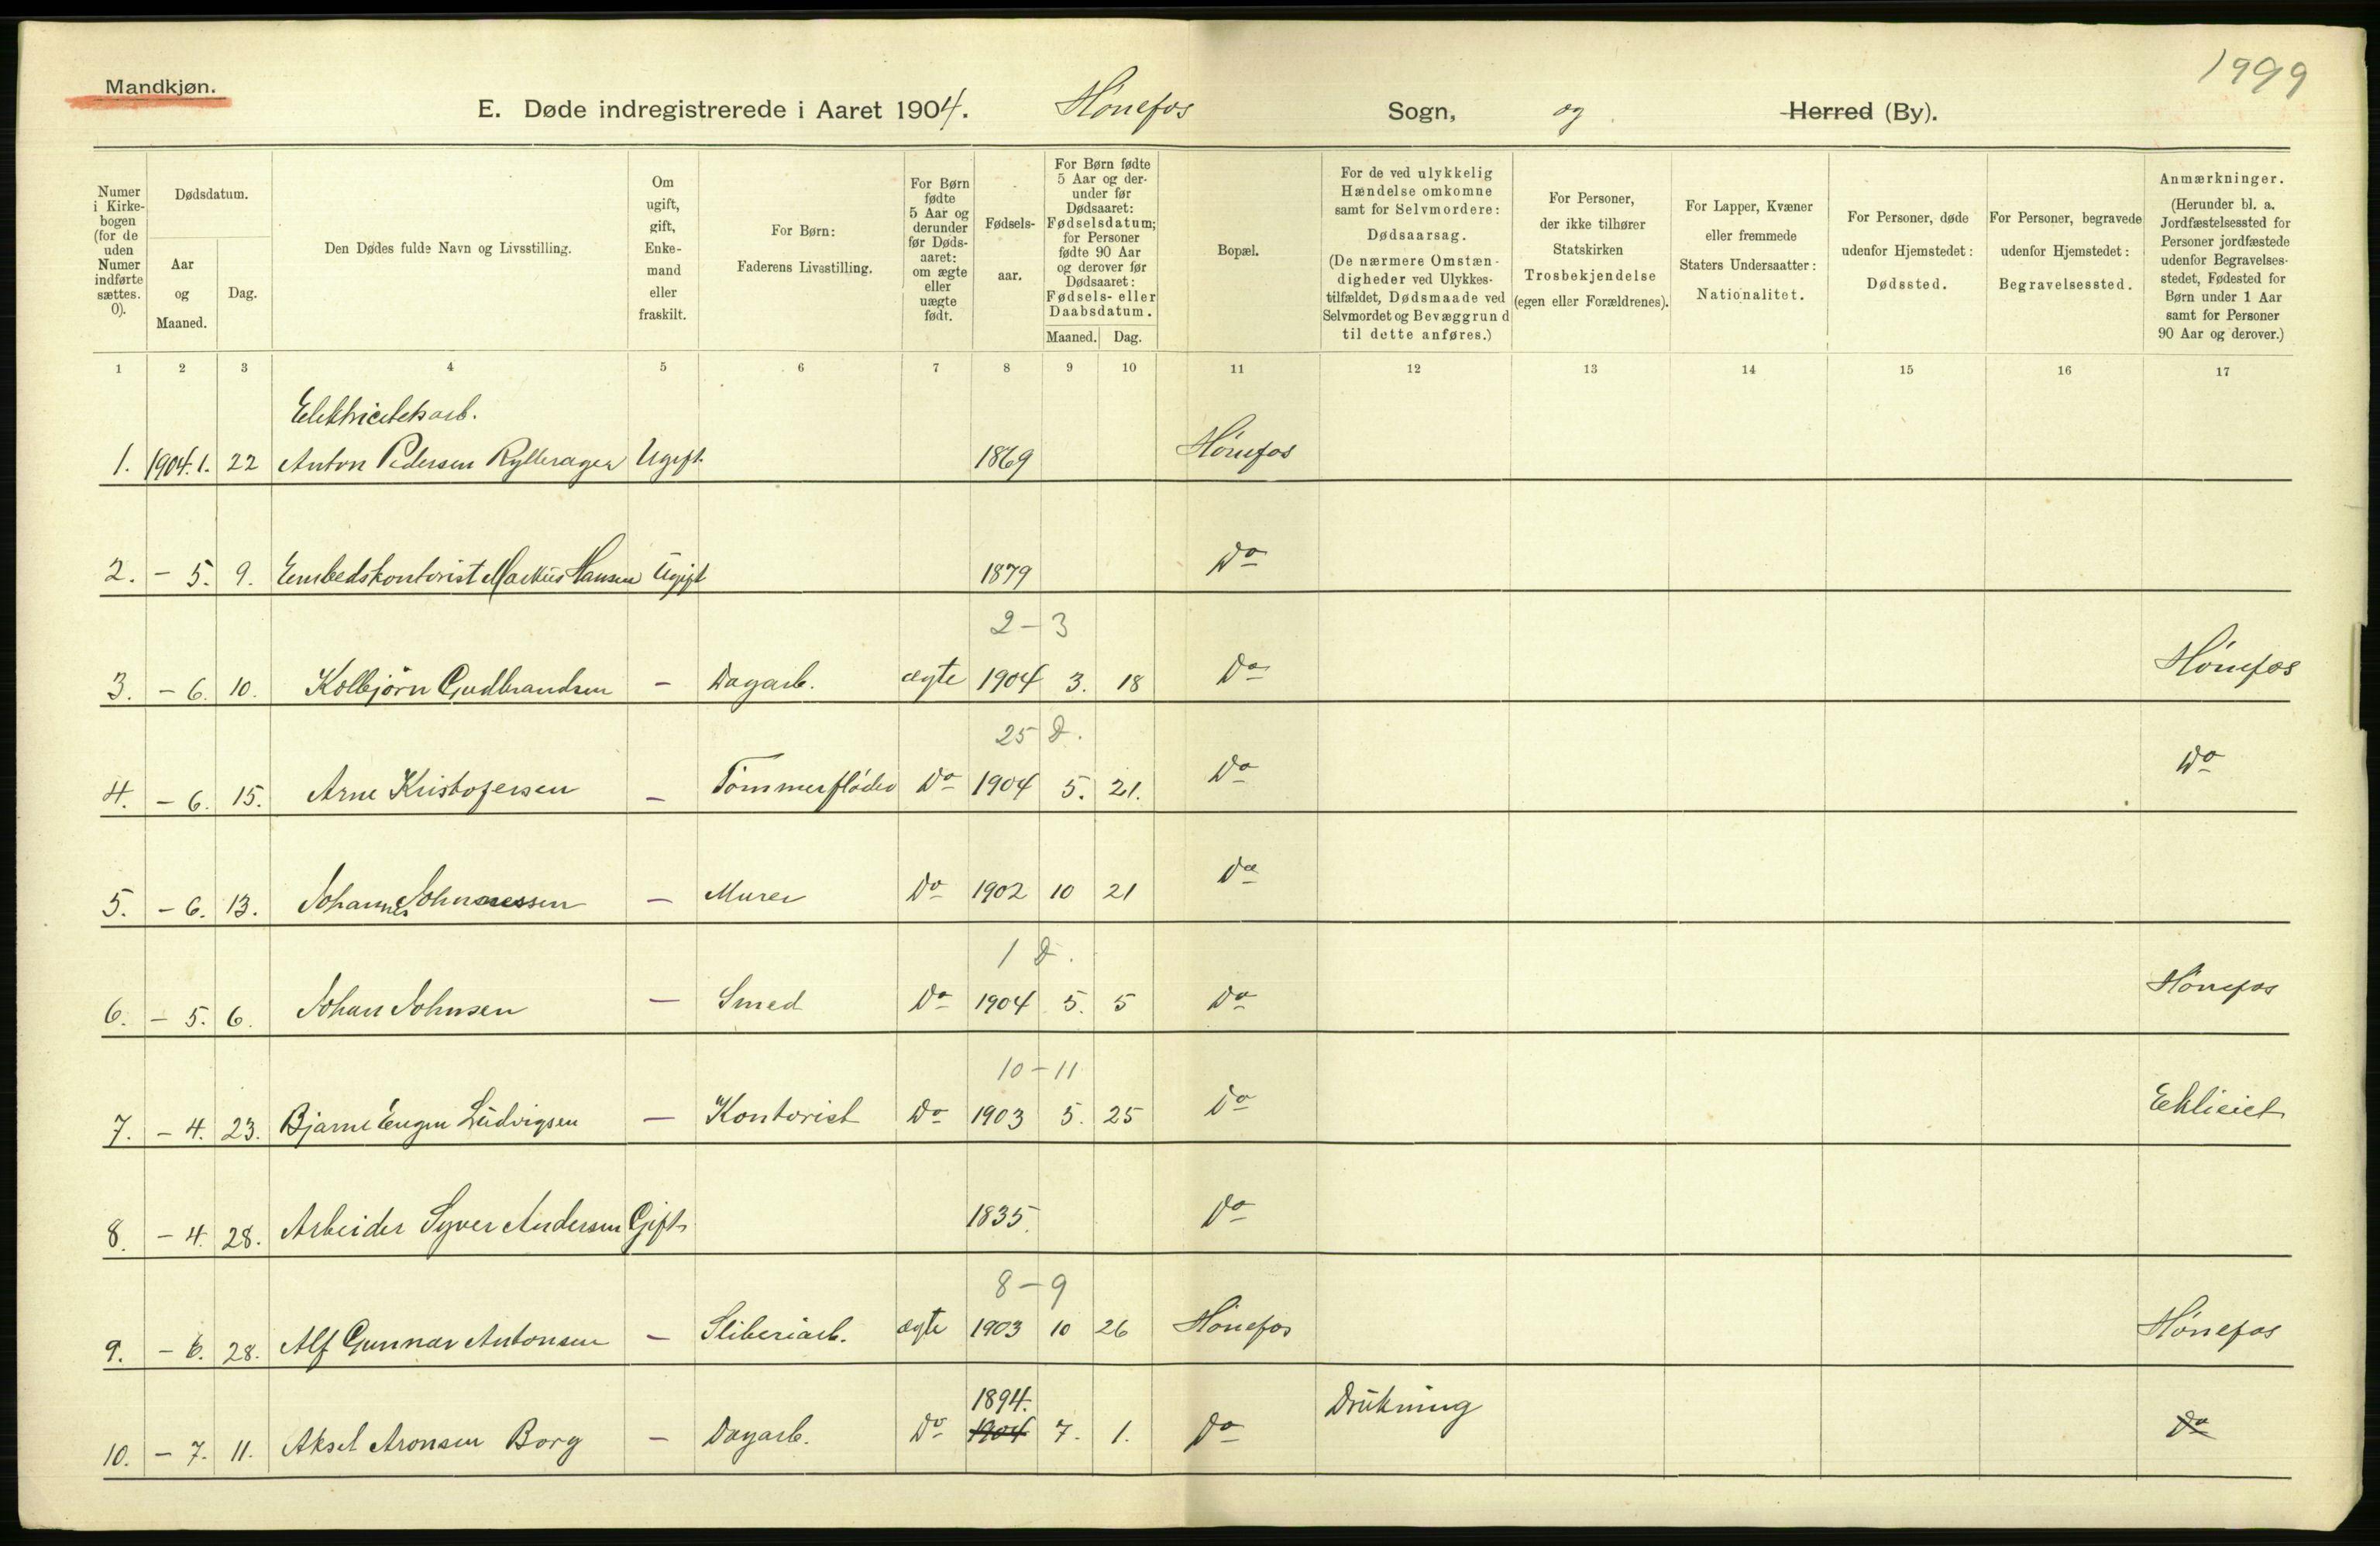 Mandkjøn.
1999
E. Døde indregistrerede i Aaret 1904. Hønefos Sogn, og Herred (By).
Numer i Kirkebogen (for de uden Numer indførte sættes. 0).
Dødsdatum.
Aar og Maaned.
Dag.
Den Dødes fulde Navn og Livsstilling.
Om ugift, gift, Enkemand eller fraskilt.
For Børn: Faderens Livsstilling.
For Børn fødte 5 Aar og derunder før Dødsaaret: om ægte eller uægte født.
Fødselsaar.
For Børn fødte 5 Aar og derunder før Dødsaaret: Fødselsdatum; for Personer fødte 90 Aar og derover før Dødsaaret: Fødsels- eller Daabsdatum.
Maaned. Dag.
Bopæl.
For de ved ulykkelig Hændelse omkomne samt for Selvmordere: Dødsaarsag. (De nærmere Omstændigheder ved Ulykkestilfældet, Dødsmaade ved Selvmordet og Bevæggrund til dette anføres.)
For Personer, der ikke tilhører Statskirken Trosbekjendelse (egen eller Forældrenes).
For Lapper, Kvæner eller fremmede Staters Undersaatter: Nationalitet.
For Personer, døde udenfor Hjemstedet: Dødssted.
For Personer, begravede udenfor Hjemstedet: Begravelsessted.
Anmærkninger. (Herunder bl. a. Jordfæstelsessted for Personer jordfæstede udenfor Begravelsesstedet, Fødested for Børn under 1 Aar samt for Personer 90 Aar og derover.)
1 2 3 4 5 6 7 8 9 10 11 12 13 14 15 16 17
Elektricitetsarb.
1. 1904. 1. 22 Anton Pedersen Ugift 1869 Hønefos
2. - 5. 9. Embedskontorist Markus Hansen Ugift 1879 Do
2-3
3. - 6. 10. Kolbjørn Gudbrandsen - Dagarb. ægte 1904 3. 18 Do Hønefos
25 D.
4. - 6. 15. Arne Kristofersen - Tømmerfløder Do 1904 5. 21. Do Do
5. - 6. 13. Johannes Johannessen - Murer Do 1902 10 21 Do
1 D.
6. - 5. 6. Johan Johnsen - Smed Do 1904 5. 5 Do Hønefos
10-11
7. - 4. 23. Bjarne Eugen Ludvigsen - Kontorist Do 1903 5. 25 Do
8. - 4. 28. Arbeider Syver Andersen Gift 1835. Do
8-9
9. - 6. 28. Alf Gunnar Antonsen - Sliberiarb. ægte 1903 10 26 Hønefos Hønefos
1894.
10. - 7. 11. Aksel Aronsen Borg - Dagarb. Do 1904 7. 1. Do Drukning Do